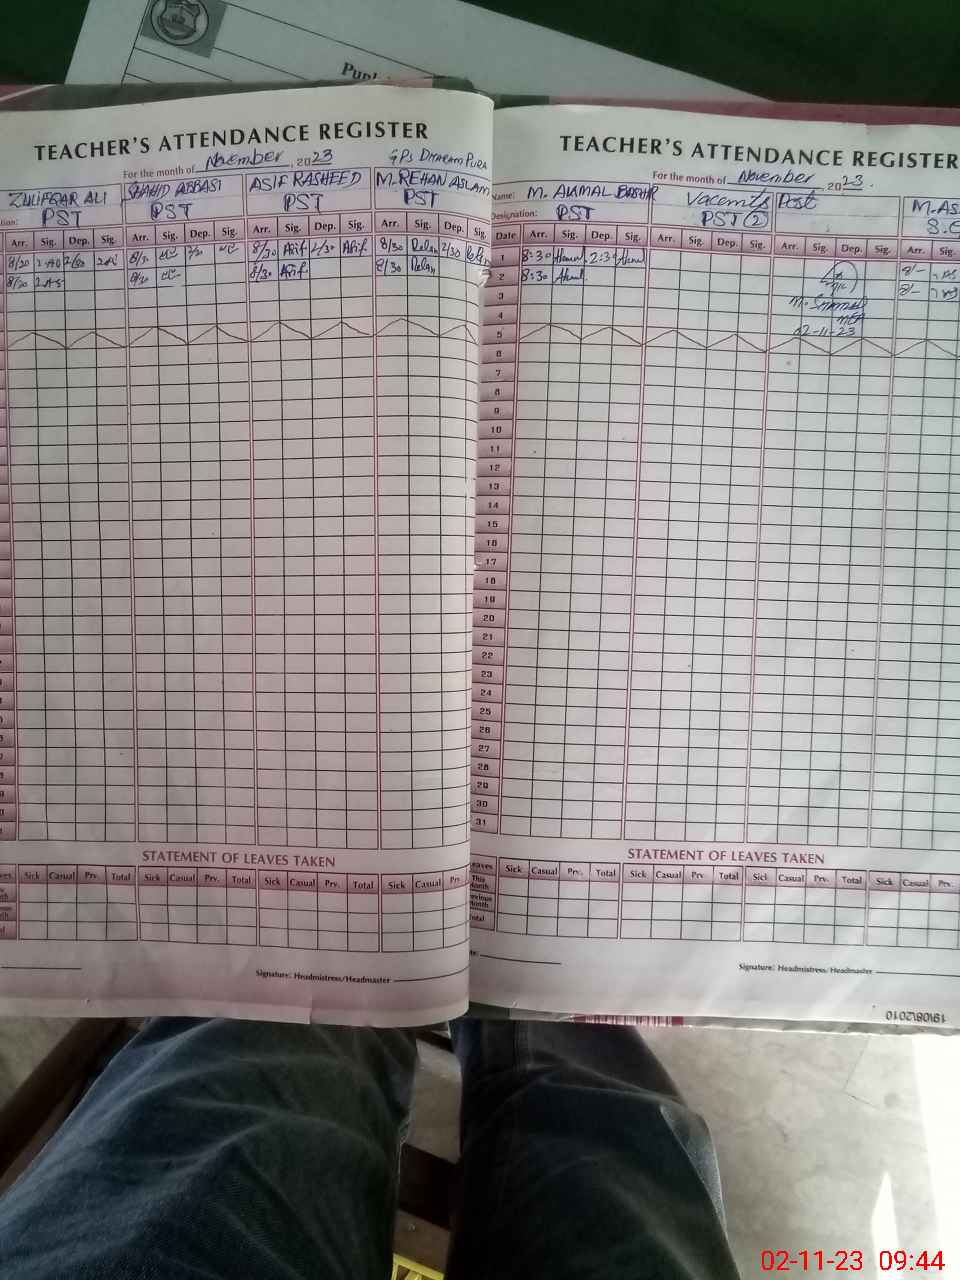 TEACHER'S ATTENDANCE REGISTER
For the month of November, 2023 GPS
ZULIFQAR ALI SHAHID ABBASI ASIF RASHEED M. REHAN ASLAM
PST PST PST PST
Arr. Sig. Dep. Sig. Arr. Sig. Dep. Sig. Arr. Sig. Dep. Sig. Arr. Sig. Dep. Sig.
8/30 2/30 8/30 2/30 8/30 Asif 2/30 Asif 8/30 2/30
8/30 8/30 8/30 Asif 8/30
STATEMENT OF LEAVES TAKEN
Sick Casual Prv. Total Sick Casual Prv. Total Sick Casual Prv. Total Sick Casual Prv.
Signature: Headmistress/Headmaster
TEACHER'S ATTENDANCE REGISTER
For the month of November 2023.
Name: M. AKMAL BASHIR Post M.AS
Designation: PST PST (2)
Date Arr. Sig. Dep. Sig. Arr. Sig. Dep. Sig. Arr. Sig. Dep. Sig. Arr. Sig.
1 8:30 8/-
2 8:30 8/-
3
4
5 02-11-23
6
7
8
9
10
11
12
13
14
15
16
17
18
19
20
21
22
23
24
25
26
27
28
29
30
31
STATEMENT OF LEAVES TAKEN
Leaves Sick Casual Prv. Total Sick Casual Prv. Total Sick Casual Prv. Total Sick Casual Prv.
This Month
Previous Month
Total
Signature: Headmistress/Headmaster
19\08\2010
02-11-23 09:44